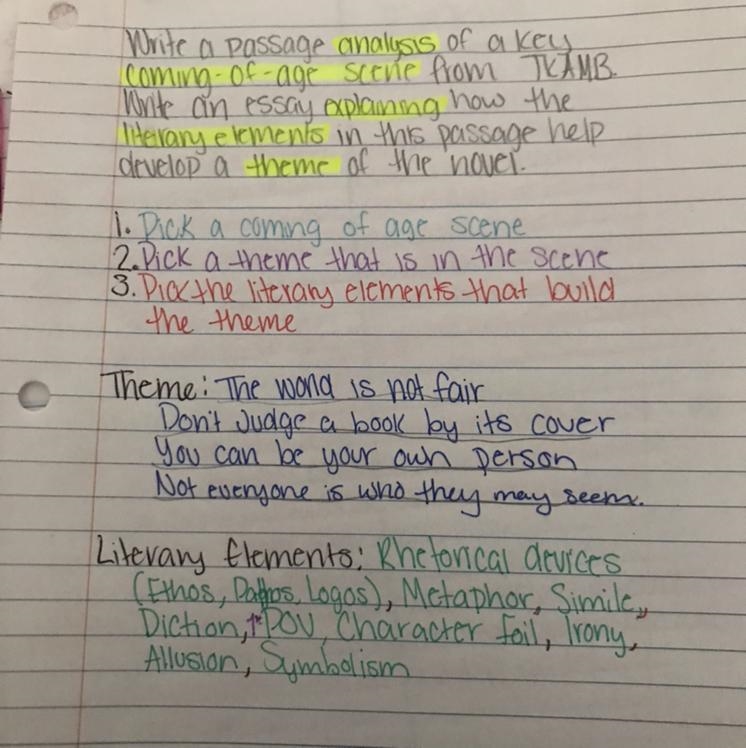 Write a passage analysis of a key
coming-of-age scene from TKAMB.
Write an essay explaining how the
literary elements in this passage help
develop a theme of the novel.
1. Pick a coming of age scene
2. Pick a theme that is in the scene
3. Pick the literary elements that build
the theme
Theme: The world is not fair
Don't Judge a book by its cover
You can be your own person
Not everyone is who they may seem.
Literary Elements: Rhetorical devices
(Ethos, Pathos, Logos), Metaphor, Simile,
Diction, POV, Character foil, Irony,
Allusion, Symbolism